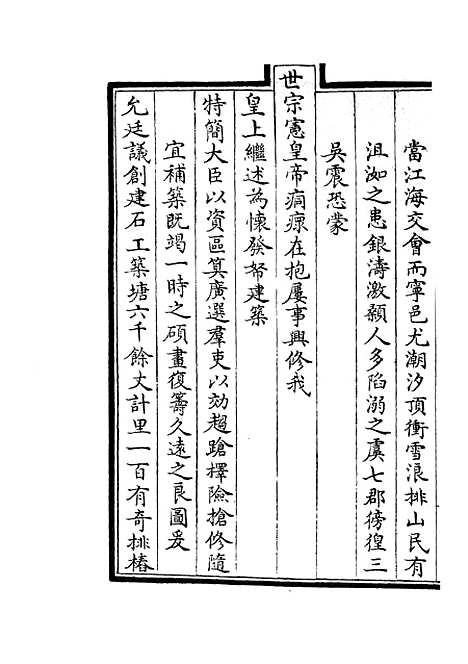 當江海交會而寧邑尤潮汐頂衝雪浪排山民有
沮洳之患銀濤激頹人多陷溺之虞七郡徬徨三
吳震恐蒙
世宗憲皇帝痌瘝在抱屢事興修我
皇上繼述為懷發帑建築
特簡大臣以資區算廣選羣吏以効趨蹌擇險搶修隨
宜補築既竭一時之碩畫復籌久遠之良圖爰
允廷議創建石工築塘六千餘丈計里一百有奇排樁